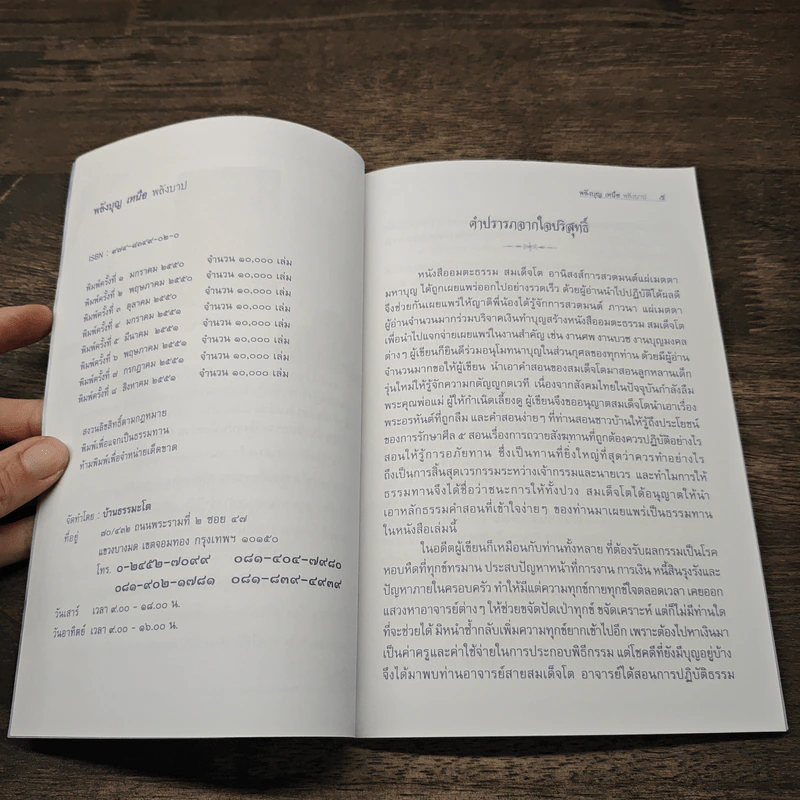 พลังบุญ เหนือ พลังบาป
ISBN : ๙๗๔-๘๓๔๙-๐๒-๐
พิมพ์ครั้งที่ ๑ มกราคม ๒๕๕๐ จำนวน ๑๐,๐๐๐ เล่ม
พิมพ์ครั้งที่ ๒ พฤษภาคม ๒๕๕๐ จำนวน ๑๐,๐๐๐ เล่ม
พิมพ์ครั้งที่ ๓ ตุลาคม ๒๕๕๐ จำนวน ๑๐,๐๐๐ เล่ม
พิมพ์ครั้งที่ ๔ มกราคม ๒๕๕๑ จำนวน ๑๐,๐๐๐ เล่ม
พิมพ์ครั้งที่ ๕ มีนาคม ๒๕๕๑ จำนวน ๑๐,๐๐๐ เล่ม
พิมพ์ครั้งที่ ๖ พฤษภาคม ๒๕๕๑ จำนวน ๑๐,๐๐๐ เล่ม
พิมพ์ครั้งที่ ๗ กรกฎาคม ๒๕๕๑ จำนวน ๑๐,๐๐๐ เล่ม
พิมพ์ครั้งที่ ๘ สิงหาคม ๒๕๕๑ จำนวน ๑๐,๐๐๐ เล่ม
สงวนลิขสิทธิ์ตามกฎหมาย
พิมพ์เพื่อแจกเป็นธรรมทาน
ห้ามพิมพ์เพื่อจำหน่ายเด็ดขาด
จัดทำโดย : บ้านธรรมะโต
ที่อยู่ ๗๐/๔๓๒ ถนนพระรามที่ ๒ ซอย ๔๗
แขวงบางมด เขตจอมทอง กรุงเทพฯ ๑๐๑๕๐
โทร. ๐-๒๔๕๒-๗๐๙๙ ๐๘๑-๔๐๔-๗๙๘๐
๐๘๑-๙๐๒-๑๗๘๑ ๐๘๑-๘๓๙-๔๙๓๙
วันเสาร์ เวลา ๙.๐๐ - ๑๘.๐๐ น.
วันอาทิตย์ เวลา ๙.๐๐ - ๑๖.๐๐ น.
พลังบุญ เหนือ พลังบาป ๕
คำปรารภจากใจบริสุทธิ์
หนังสืออมตะธรรม สมเด็จโต อานิสงส์การสวดมนต์แผ่เมตตา
มหาบุญ ได้ถูกเผยแพร่ออกไปอย่างรวดเร็ว ด้วยผู้อ่านนำไปปฏิบัติได้ผลดี
จึงช่วยกันเผยแพร่ให้ญาติพี่น้องได้รู้จักการสวดมนต์ ภาวนา แผ่เมตตา
ผู้อ่านจำนวนมากร่วมบริจาคเงินทำบุญสร้างหนังสืออมตะธรรม สมเด็จโต
เพื่อนำไปแจกจ่ายเผยแพร่ในงานสำคัญ เช่น งานศพ งานบวช งานบุญมงคล
ต่างๆ ผู้เขียนก็ยินดีร่วมอนุโมทนาบุญในส่วนกุศลของทุกท่าน ด้วยมีผู้อ่าน
จำนวนมากขอให้ผู้เขียน นำเอาคำสอนของสมเด็จโตมาสอนลูกหลานเด็ก
รุ่นใหม่ให้รู้จักความกตัญญูกตเวที เนื่องจากสังคมไทยในปัจจุบันกำลังลืม
พระคุณพ่อแม่ ผู้ให้กำเนิดเลี้ยงดู ผู้เขียนจึงขออนุญาตสมเด็จโตนำเอาเรื่อง
พระอรหันต์ที่ถูกลืม และคำสอนง่ายๆ ที่ท่านสอนชาวบ้านให้รู้ถึงประโยชน์
ของการรักษาศีล ๕ สอนเรื่องการถวายสังฆทานที่ถูกต้องควรปฏิบัติอย่างไร
สอนให้รู้การอภัยทาน ซึ่งเป็นทานที่ยิ่งใหญ่ที่สุดว่าควรทำอย่างไร
ถึงเป็นการสิ้นสุดเวรกรรมระหว่างเจ้ากรรมและนายเวร และทำไมการให้
ธรรมทานจึงได้ชื่อว่าชนะการให้ทั้งปวง สมเด็จโตได้อนุญาตให้นำ
เอาหลักธรรมคำสอนที่เข้าใจง่ายๆ ของท่านมาเผยแพร่เป็นธรรมทาน
ในหนังสือเล่มนี้
ในอดีตผู้เขียนก็เหมือนกับท่านทั้งหลาย ที่ต้องรับผลกรรมเป็นโรค
หอบหืดที่ทุกข์ทรมาน ประสบปัญหาหน้าที่การงาน การเงิน หนี้สินรุงรังและ
ปัญหาภายในครอบครัว ทำให้มีแต่ความทุกข์กายทุกข์ใจตลอดเวลา เคยออก
แสวงหาอาจารย์ต่างๆ ให้ช่วยขจัดปัดเป่าทุกข์ ขจัดเคราะห์ แต่ก็ไม่มีท่านใด
ที่จะช่วยได้ มิหนำซ้ำกลับเพิ่มความทุกข์ยากเข้าไปอีก เพราะต้องไปหาเงินมา
เป็นค่าครูและค่าใช้จ่ายในการประกอบพิธีกรรม แต่โชคดีที่ยังมีบุญอยู่บ้าง
จึงได้มาพบท่านอาจารย์สายสมเด็จโต อาจารย์ได้สอนการปฏิบัติธรรม